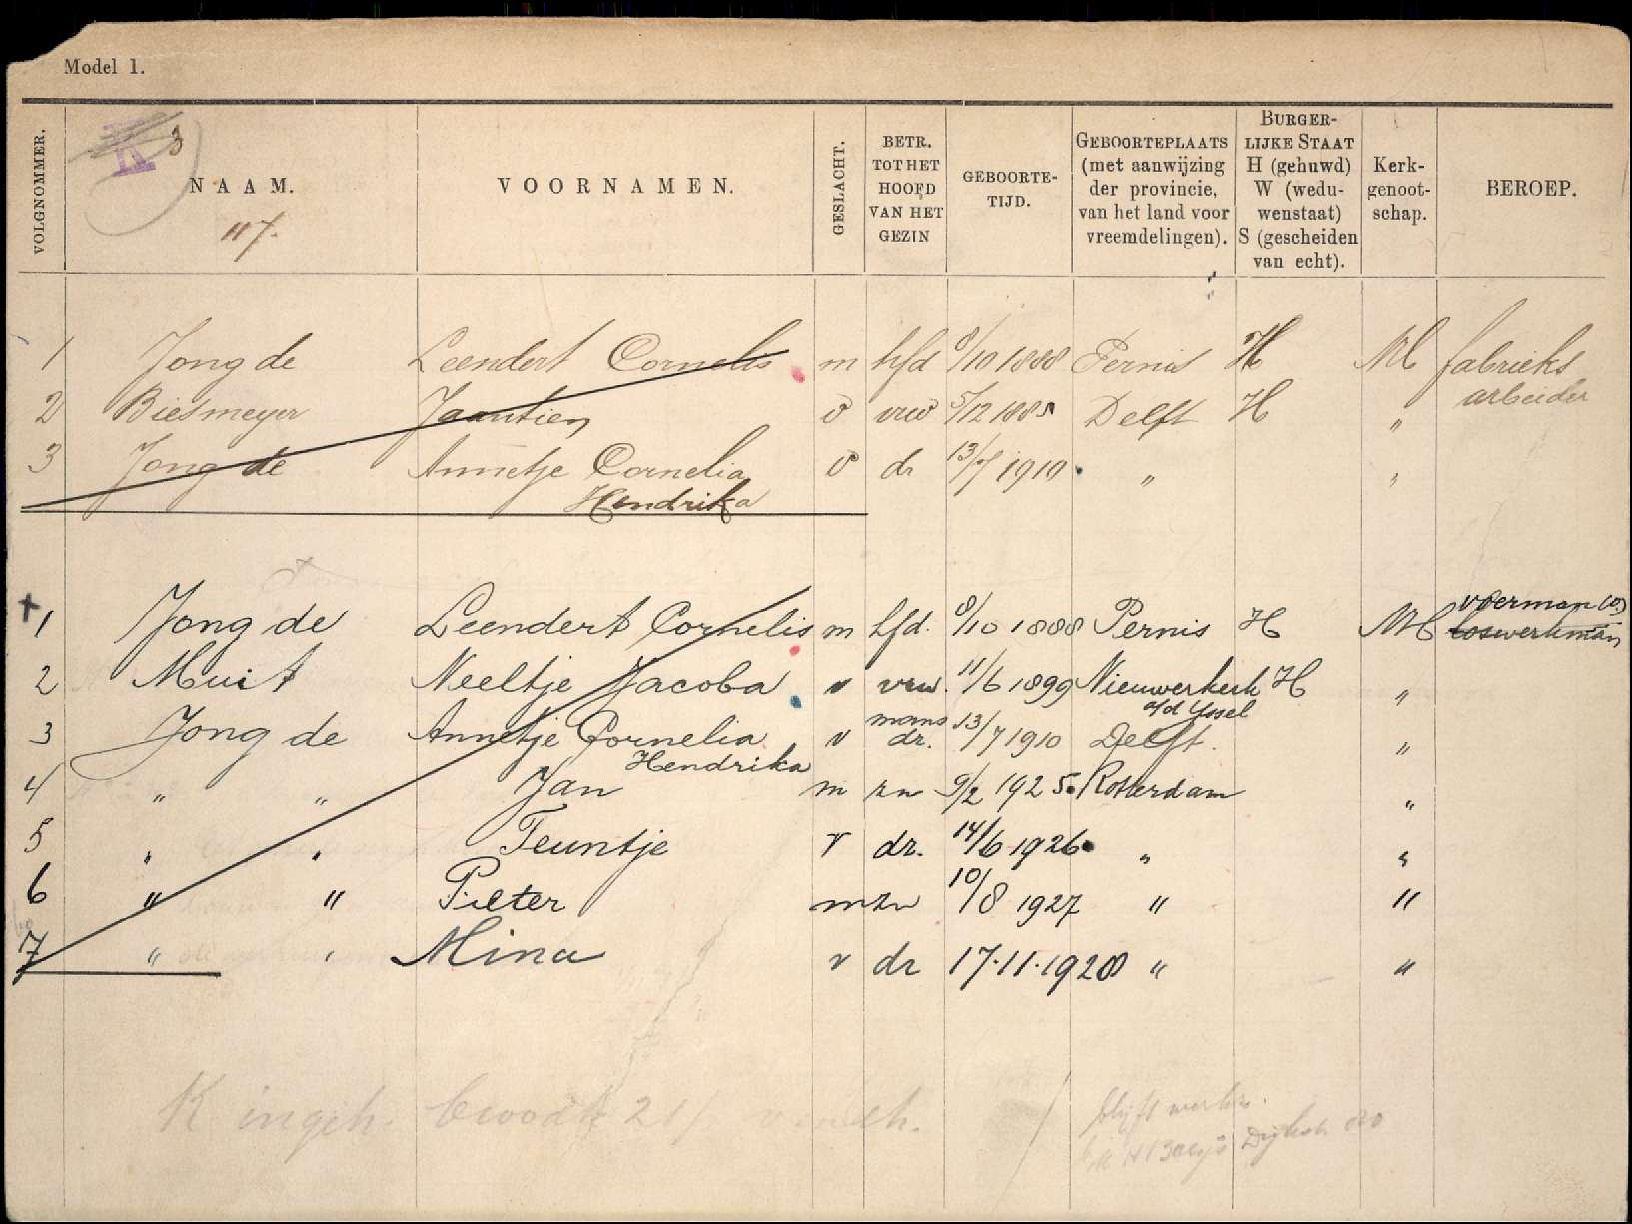 Model 1.
VOLGNOMMER.
K 3
NAAM.
117.
VOORNAMEN.
GESLACHT.
BETR. TOT HET HOOFD VAN HET GEZIN
GEBOORTE-TIJD.
GEBOORTEPLAATS (met aanwijzing der provincie, van het land voor vreemdelingen).
BURGER-LIJKE STAAT H (gehuwd) W (wedu-wenstaat) S (gescheiden van echt).
Kerk-genoot-schap.
BEROEP.
1 Jong de Leendert Cornelis m hfd 8/10 1888 Pernis H NH fabrieks
arbeider
2 Biesmeyer Jaantien v vrw 5/12 188 Delft H "
3 Jong de Annetje Cornelia v dr 13/7 1910 " "
Hendrika
voerman (o)
1 Jong de Leendert Cornelis m hfd. 8/10 1888 Pernis H NH loswerkman
2 Muit Neeltje Jacoba v vrw. 11/6 1899 Nieuwerkerk H "
a/d Yssel
3 Jong de Annetje Cornelia v mans dr. 13/7 1910 Delft. "
Hendrika
4 " " Jan m zn 9/2 1925 Rotterdam "
5 " " Teuntje v dr. 14/6 1926 " "
6 " " Pieter m zn 10/8 1927 " "
7 " " Mina v dr 17.11.1928 " "
K ingeh.
blijft